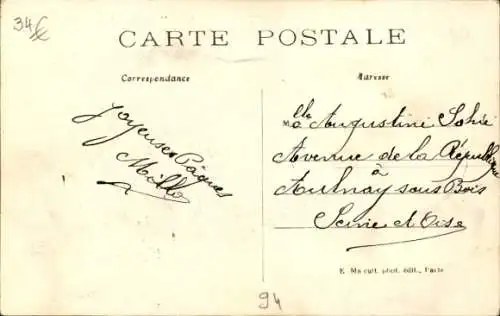 34
CARTE POSTALE
Correspondance
Adresse
Joyeuses Pâques
Mlle Augustine
Avenue de la République
à
Aulnay sous Bois
Seine et Oise
phot. édit., Paris
94